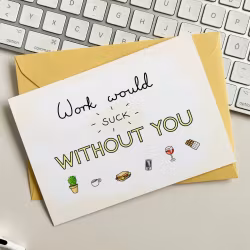 Work would
SUCK
WITHOUT YOU